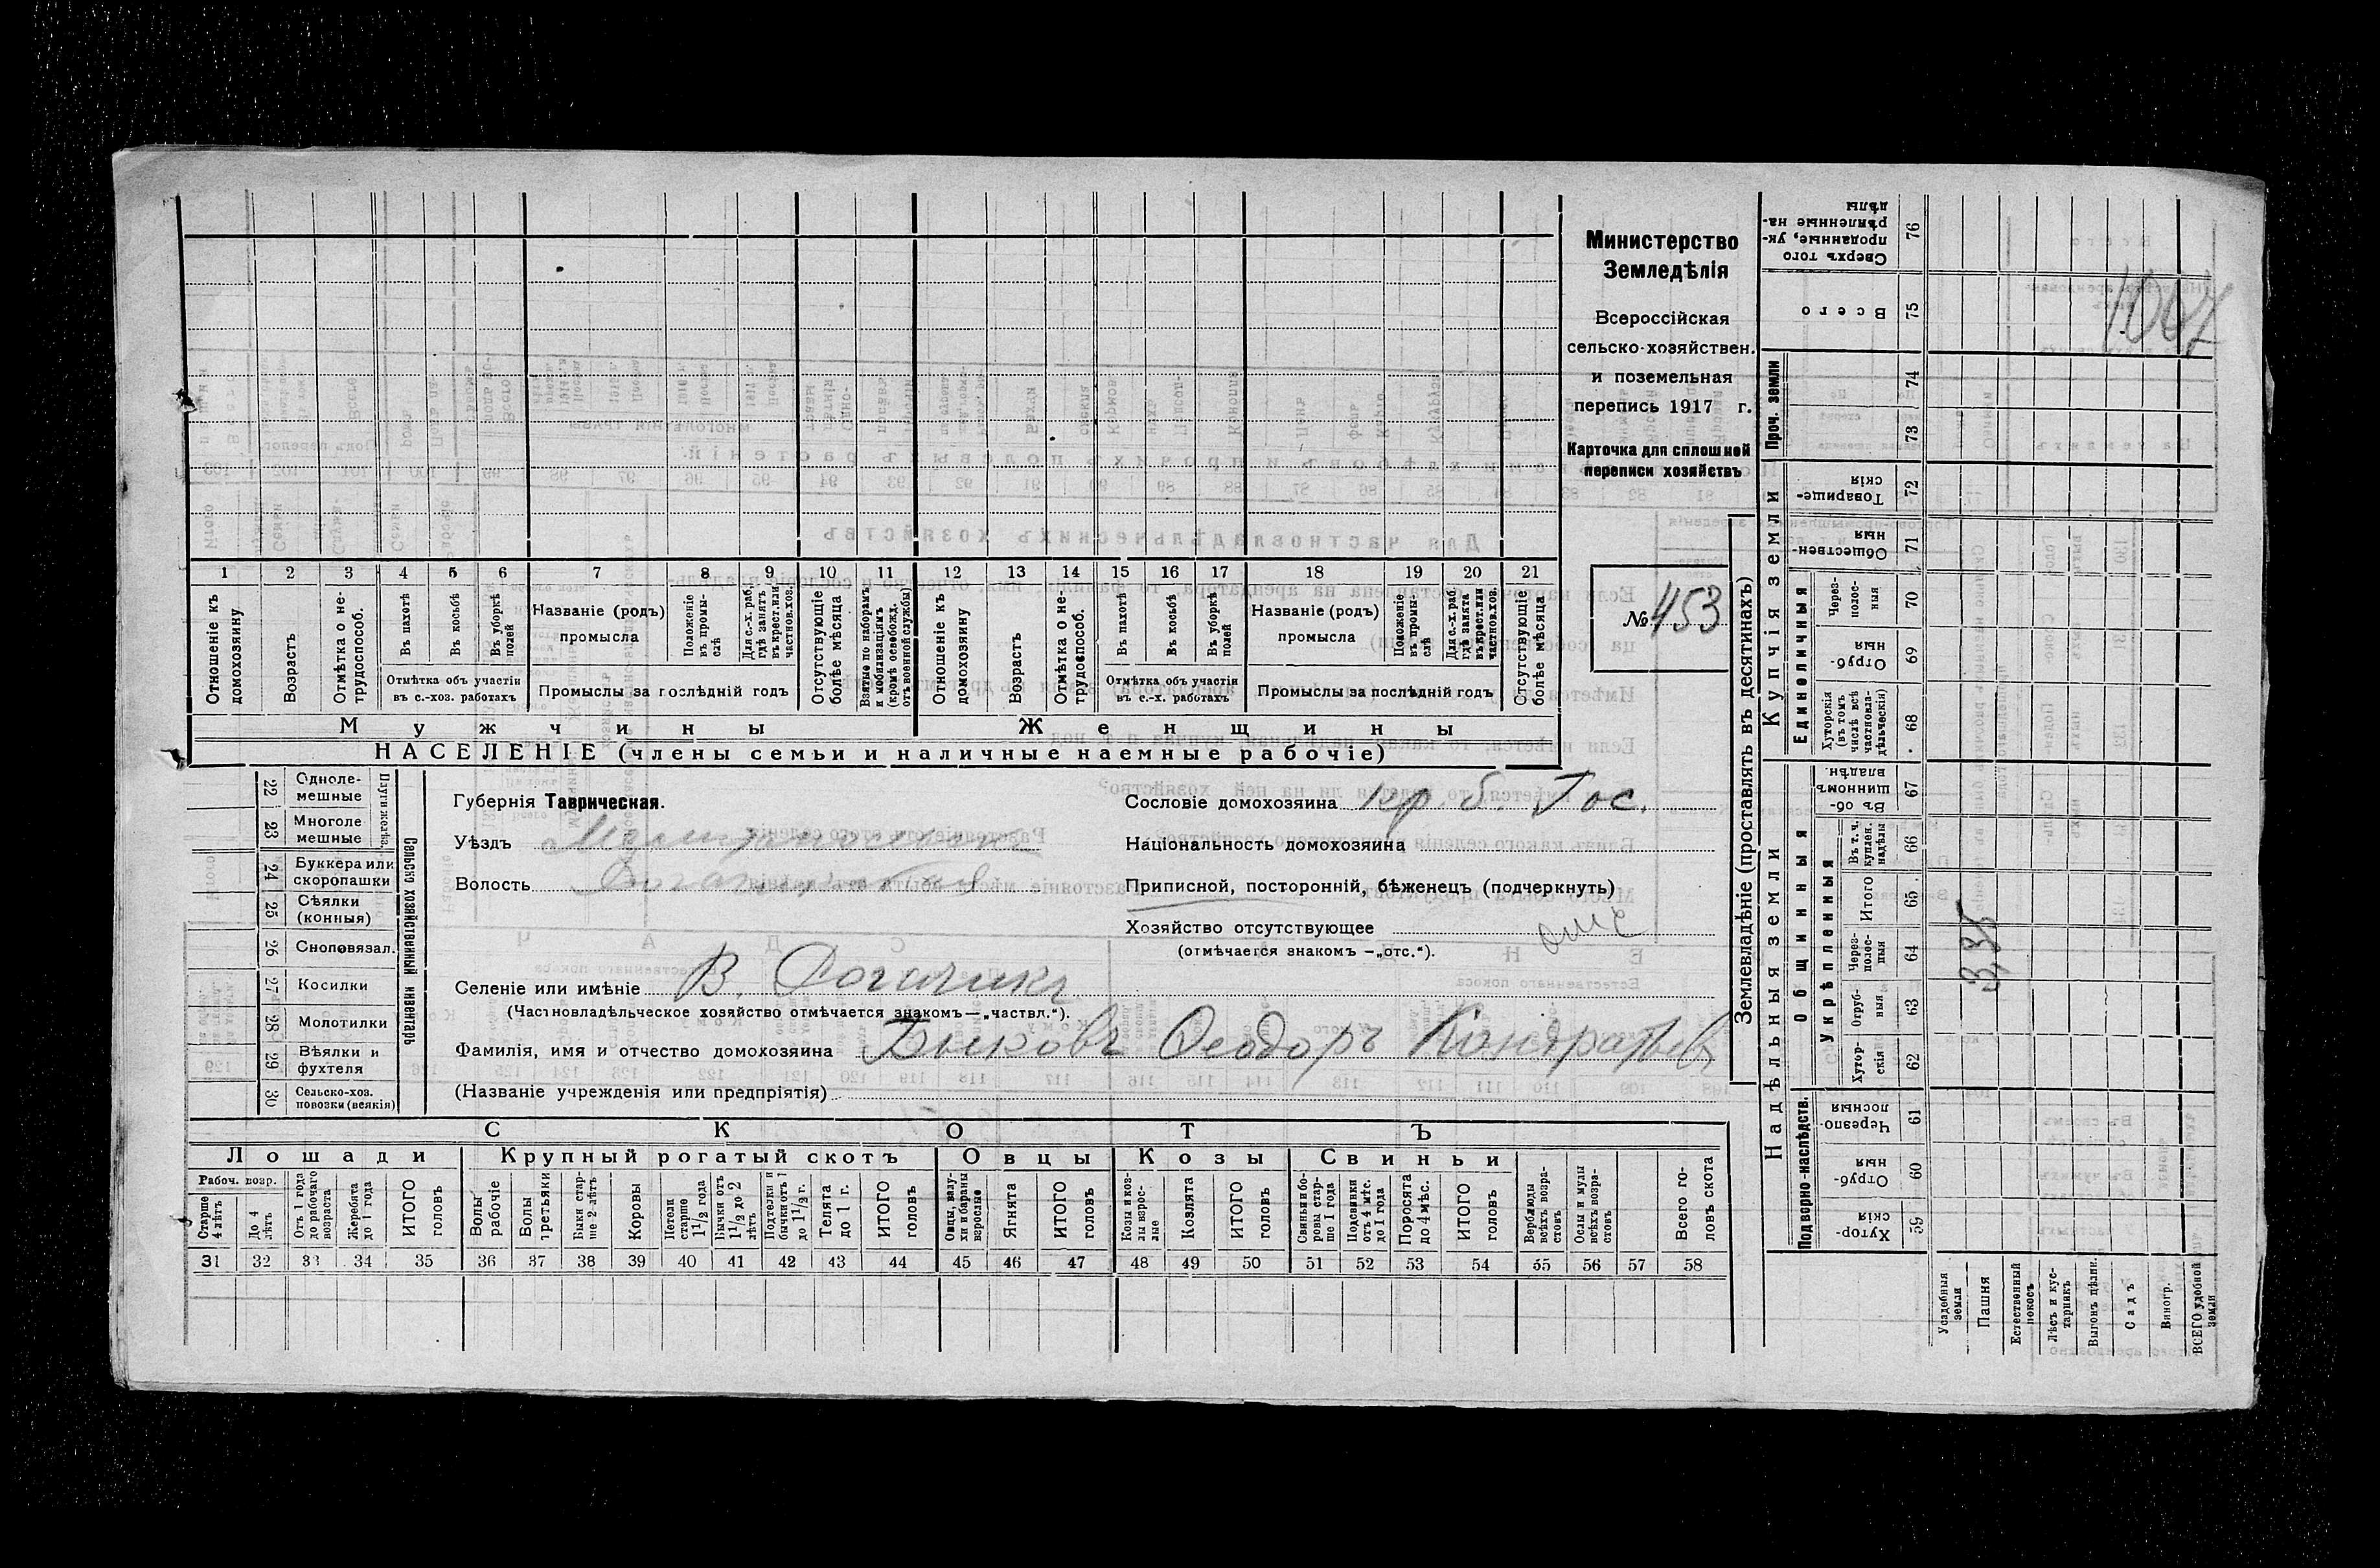 Министерство
Земледѣлія
Всероссійская
сельско-хозяйствен.
и поземельная
перепись 1917 г.
Карточка для сплошной
переписи хозяйствъ
№ 453
1 2 3 4 5 6 7 8 9 10 11 12 13 14 15 16 17 18 19 20 21
Отношеніе къ домохозяину
Возрастъ
Отмѣтка о не-трудоспособ.
Въ пахотѣ
Въ косьбѣ
Въ уборкѣ полей
Отмѣтка объ участіи въ с.-хоз. работахъ
Названіе (родъ) промысла
Положеніе въ промы-слѣ
Для с.-х. раб. гдѣ занятъ въ крест. или частнов. хоз.
Промыслы за послѣдній годъ
Отсутствующіе болѣе мѣсяца
Взятые по наборамъ и мобилизаціямъ (кромѣ освобожд. отъ военной службы)
Отношеніе къ домохозяину
Возрастъ
Отмѣтка о не-трудоспособ.
Въ пахотѣ
Въ косьбѣ
Въ уборкѣ полей
Отмѣтка объ участіи въ с.-х. работахъ
Названіе (родъ) промысла
Положеніе въ промы-слѣ
Для с.-х. раб. гдѣ занята въ крест. или частнов. хоз.
Промыслы за послѣдній годъ
Отсутствующіе болѣе мѣсяца
Мужчины Женщины
НАСЕЛЕНІЕ (члены семьи и наличные наемные рабочіе)
Сельско хозяйственный инвентарь
22 Одноле-мешные
23 Многоле мешные
24 Буккера или скоропашки
25 Сѣялки (конныя)
26 Сноповязал.
27 Косилки
28 Молотилки
29 Вѣялки и фухтеля
30 Сельско-хоз. повозки (всякія)
Губернія Таврическая.
Уѣздъ Мелитопольскій
Волость
Сословіе домохозяина кр. б. Гос.
Національность домохозяина
Приписной, посторонній, бѣженецъ (подчеркнуть)
Хозяйство отсутствующее отс
(отмѣчается знакомъ —„отс.“).
Селеніе или имѣніе В. Рогачикъ
(Частновладѣльческое хозяйство отмѣчается знакомъ—„частвл.“).
Фамилія, имя и отчество домохозяина Быковъ Ѳеодоръ Кондратьев
(Названіе учрежденія или предпріятія)
СКОТЪ
Лошади Крупный рогатый скотъ Овцы Козы Свиньи
Рабоч. возр.
Старше 4 лѣтъ
До 4 лѣтъ
Отъ 1 года до рабочаго возраста
Жеребята до 1 года
ИТОГО головъ
Волы рабочіе
Волы третьяки
Быки стар-ше 2 лѣтъ
Коровы
Нетели старше 1 1/2 года
Бычки отъ 1 1/2 до 2 лѣтъ
Подтелки и бычки отъ 1 до 1 1/2 г.
Телята до 1 г.
ИТОГО головъ
Овцы, валу-хи и бараны взрослые
Ягнята
ИТОГО головъ
Козы и коз-лы взрос-лые
Козлята
ИТОГО головъ
Свиньи и бо-ровы стар-ше 1 года
Подсвинки отъ 4 мѣс. до 1 года
Поросята до 4 мѣс.
ИТОГО головъ
Верблюды всѣхъ возра-стовъ
Ослы и мулы всѣхъ возра-стовъ
Всего го-ловъ скота
31 32 33 34 35 36 37 38 39 40 41 42 43 44 45 46 47 48 49 50 51 52 53 54 55 56 57 58
Землевладѣніе (проставлять въ десятинахъ)
Сверхъ того проданные, ук-рѣпленные на-дѣлы 76
Всего 75
Проч. земли
74
73
Купчія земли
Товарище-скія 72
Обществен-ныя 71
Единоличныя
Через-полос-ныя 70
Отруб-ныя 69
Хуторскія (въ томъ числѣ всѣ частновла-дѣльческія) 68
Надѣльныя земли
Общинныя
Въ об-щинномъ владѣн. 67
Укрѣпленныя
Въ т. ч. куплен. надѣлы 66
Итого 65
Через-полос-ныя 64
Отруб-ныя 63
Хутор-скія 62
Подворно-наслѣдств.
Черезпо-лосныя 61
Отруб-ныя 60
Хутор-скія 59
Усадебныя земли
Пашня
Естественный покосъ
Лѣсъ и кус-тарникъ
Выгонъ цѣлин.
Садъ
Виногр.
ВСЕГО удобной земли
1067